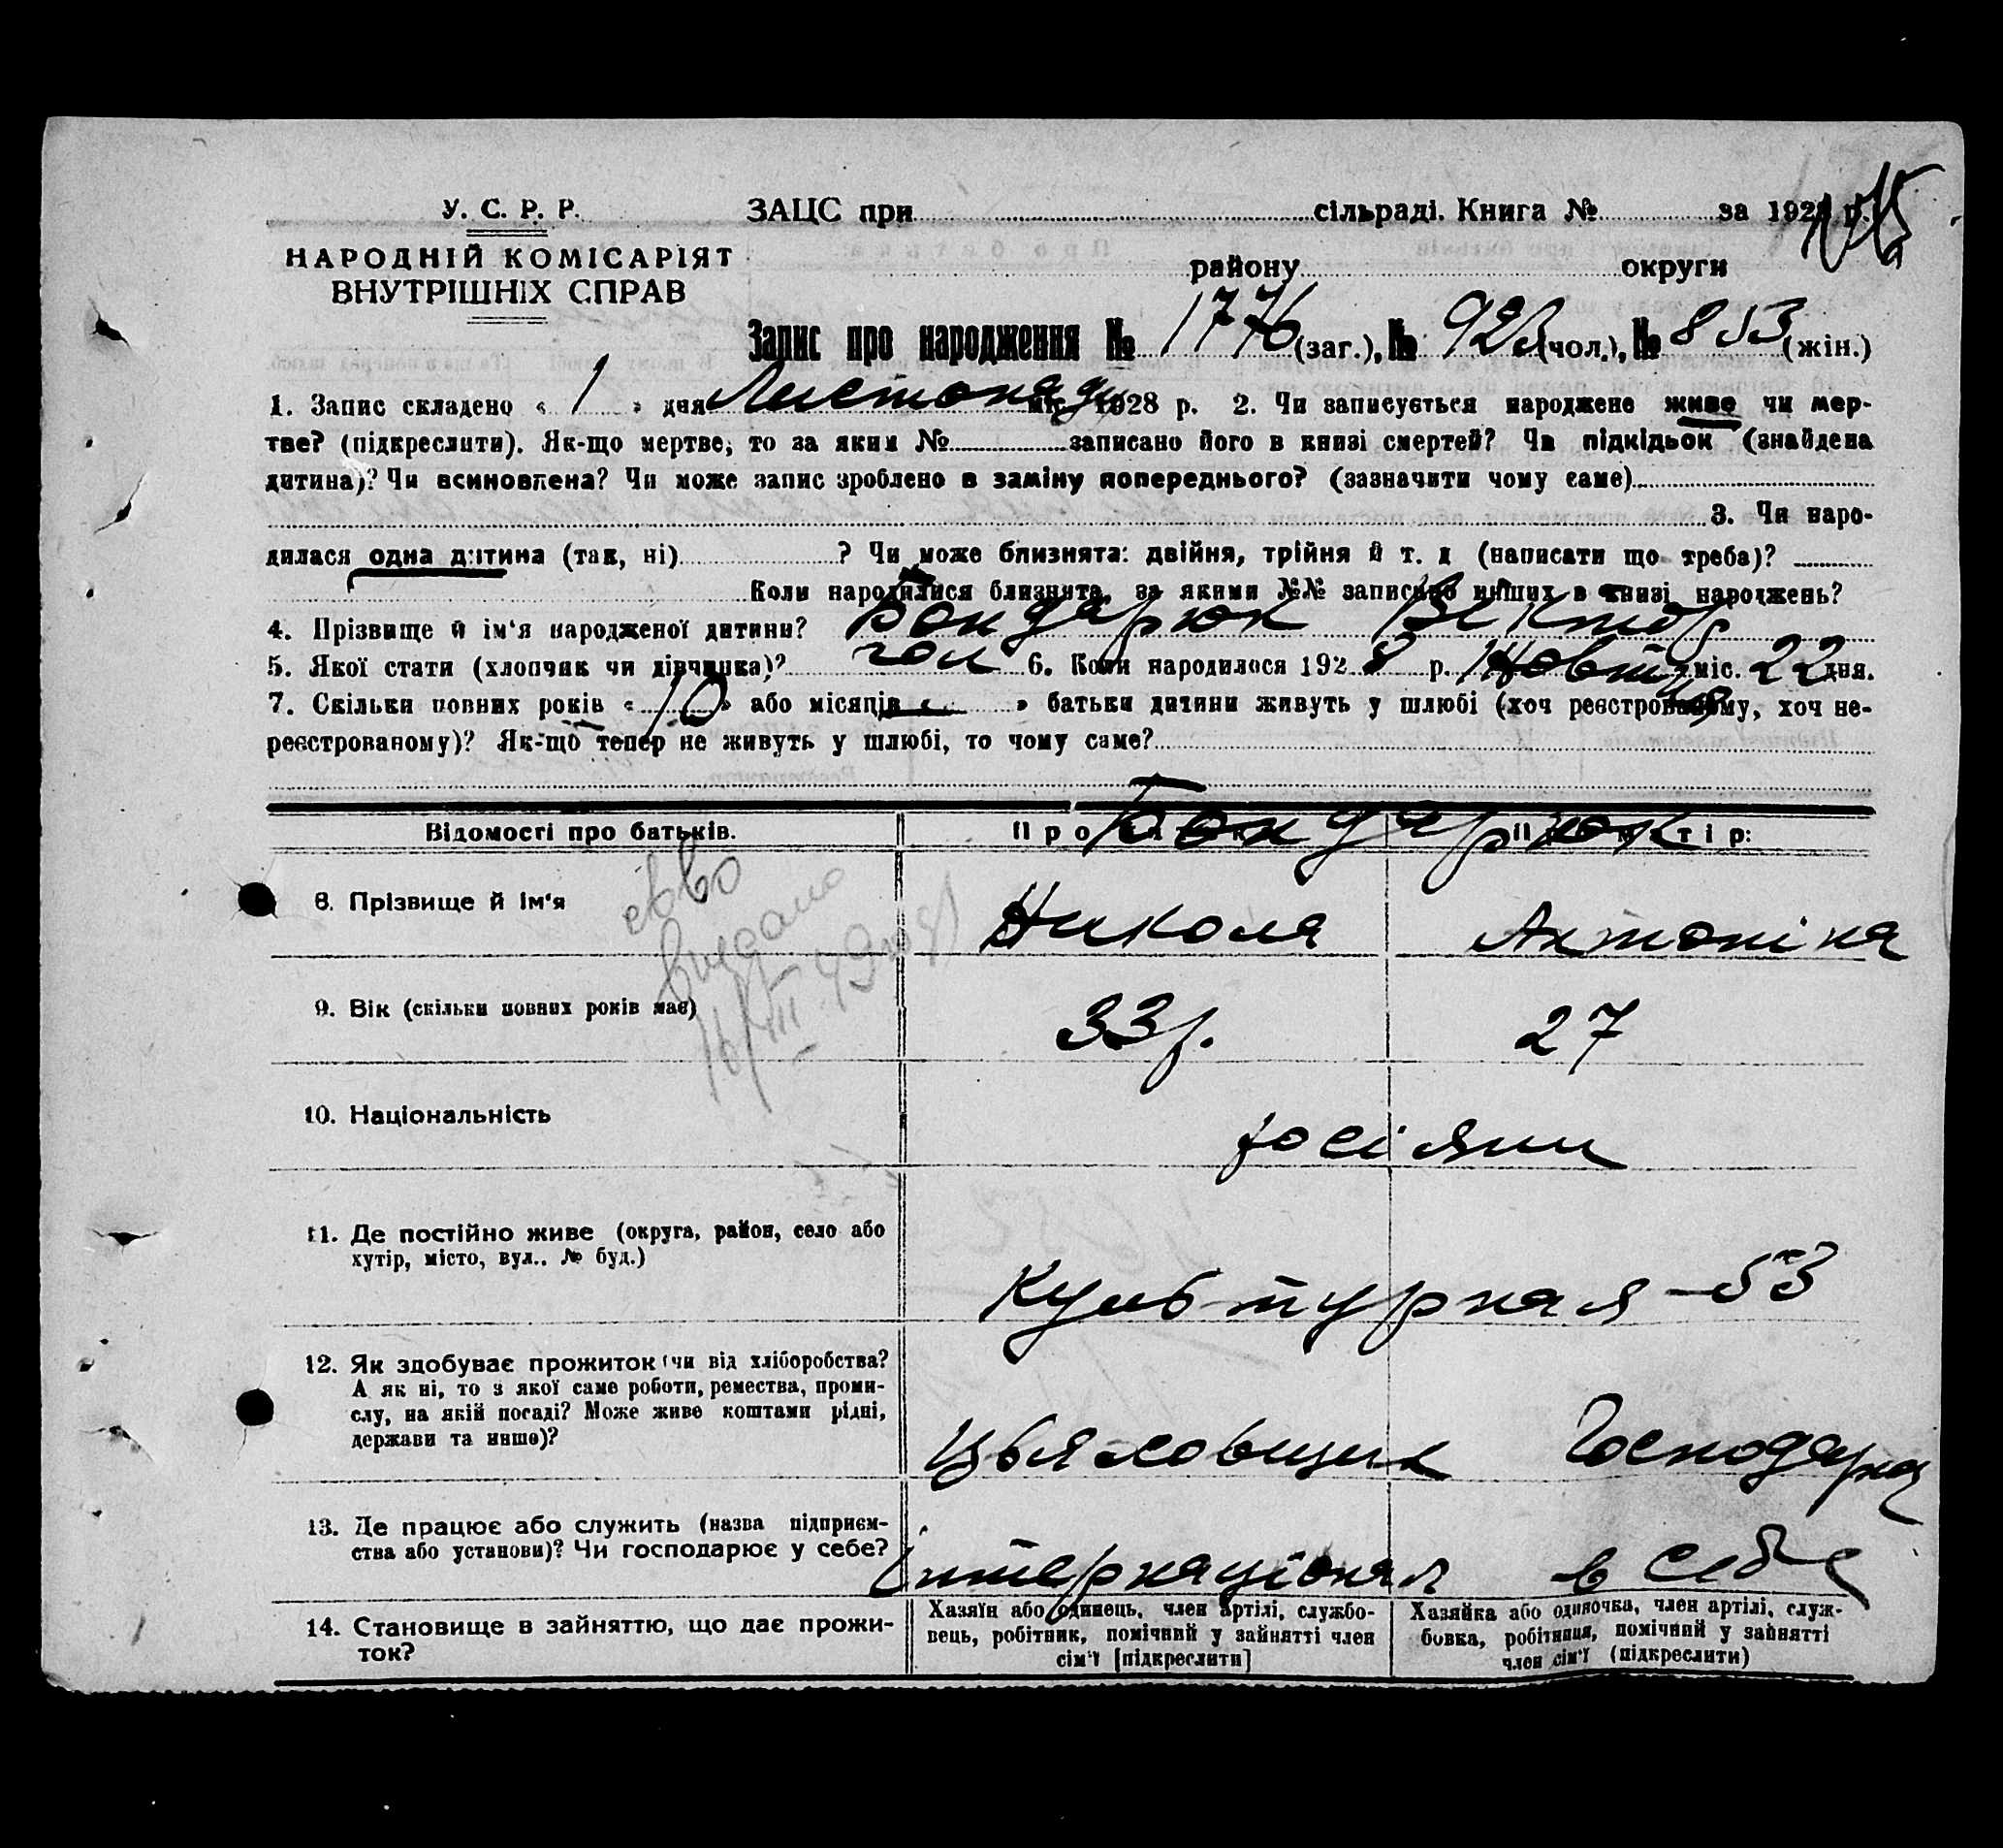 У. С. Р. Р.
НАРОДНІЙ КОМІСАРІЯТ
ВНУТРІШНІХ СПРАВ
ЗАЦС при сільраді. Книга № за 192 р.
району округи
Запис про народження № 1776 (заг.), № (чол.), № 853 (жін.)
1. Запис складено « 1 » дня Листопаду міс. 1928 р. 2. Чи записується народжене живе чи мер-
тве? (підкреслити). Як-що мертве, то за яким № записано його в книзі смертей? Чи підкідьок (знайдена
дитина)? Чи всиновлена? Чи може запис зроблено в заміну попереднього? (зазначити чому саме)
3. Чи наро-
дилася одна дитина (так, ні) ? Чи може близнята: двійня, трійня й т. д (написати що треба)?
Коли народилися близнята, за якими №№ записано инших в книзі народжень?
4. Прізвище й ім'я народженої дитини? Бондарюк Віктор
5. Якої стати (хлопчик чи дівчинка)? чол 6. Коли народилося 1928 р. Жовтня міс. 22 дня.
7. Скільки повних років « 10 » або місяців « » батьки дитини живуть у шлюбі (хоч реєстрованому, хоч не-
реєстрованому)? Як-що тепер не живуть у шлюбі, то чому саме?
Відомості про батьків. Бондарюк
8. Прізвище й ім'я Николя Антоніна
видано
9. Вік (скільки повних років має) 33 р. 27
10. Національність росіяни
11. Де постійно живе (округа, район, село або
хутір, місто, вул.. № буд.) Культурная – 53
12. Як здобуває прожиток (чи від хліборобства?
А як ні, то з якої саме роботи, ремества, проми-
слу, на якій посаді? Може живе коштами рідні,
держави та инше)? Господарка
13. Де працює або служить (назва підприєм-
ства або установи)? Чи господарює у себе? Інтернаціонал в себе
14. Становище в зайняттю, що дає прожи-
ток?
Хазяїн або одинець, член артілі, службо-
вець, робітник, помічний у зайнятті член
сім'ї [підкреслити]
Хазяйка або одиночка, член артілі, служ-
бовка, робітниця, помічний у зайнятті
член сім'ї (підкреслити)